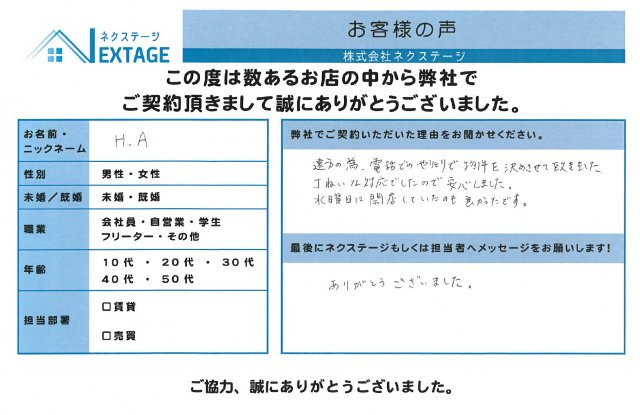 ネクステージ
NEXTAGE
お客様の声
株式会社ネクステージ
この度は数あるお店の中から弊社で
ご契約頂きまして誠にありがとうございました。
お名前・
ニックネーム
H.A
性別
男性・女性
未婚/既婚
未婚・既婚
職業
会社員・自営業・学生
フリーター・その他
年齢
10代 ・ 20代 ・ 30代
40代 ・ 50代
担当部署
□賃貸
□売買
弊社でご契約いただいた理由をお聞かせください。
遠方の為、電話でのやりとりで物件を決めさせて頂きました
丁ねいな対応でしたので安心しました。
水曜日に開店していたのも良かったです。
最後にネクステージもしくは担当者へメッセージをお願いします!
ありがとうございました。
ご協力、誠にありがとうございました。